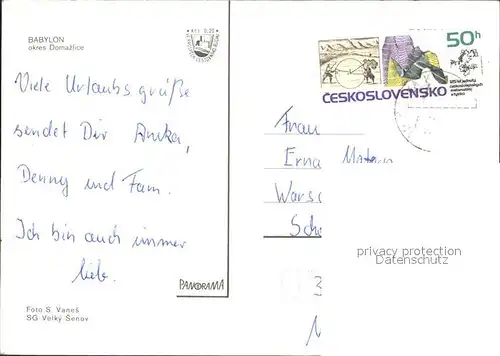 BABYLON
okres Domažlice
Kčs 0,20
Viele Urlaubsgrüße
sendet Dir Anika,
Denny und Fam.
Ich bin auch immer
liebe.
PANORAMA
Foto S. Vaneš
SG Velký Šenov
50h
ČESKOSLOVENSKO
Frau
Erna
Wars
Sch
privacy protection
Datenschutz